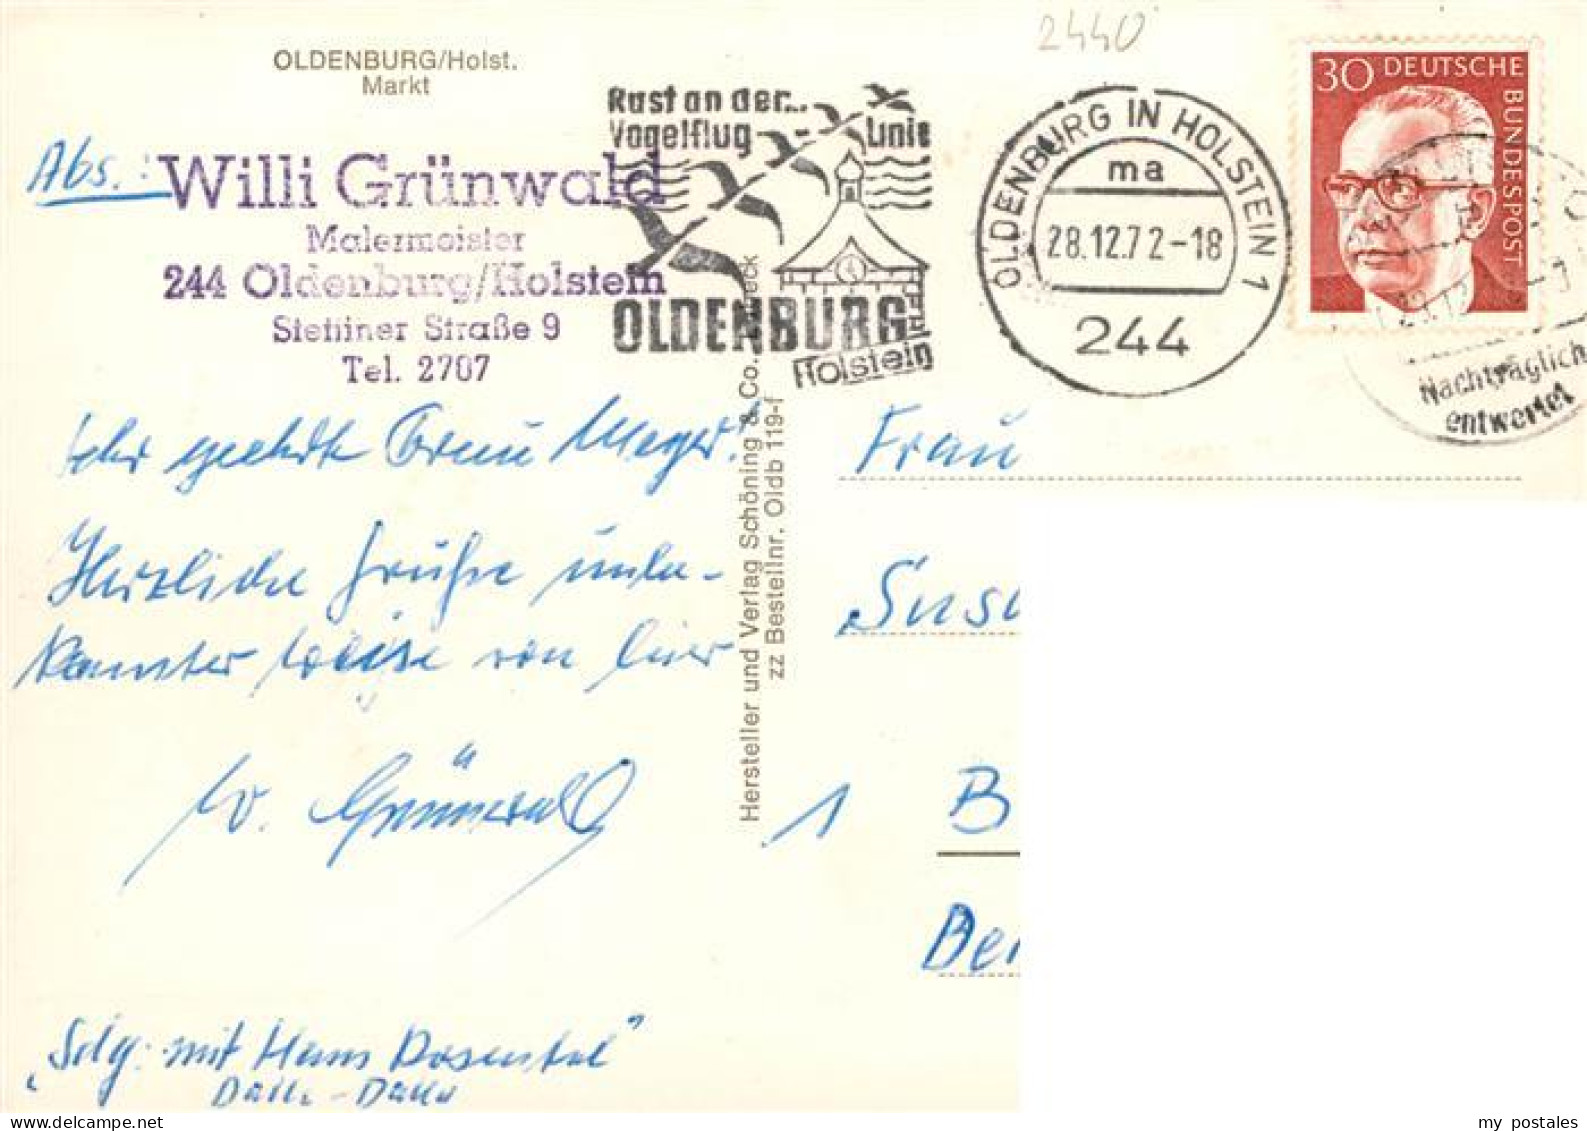 2440
OLDENBURG/Holst.
Markt
Abs.:
Willi Grünwald
Malermeister
244 Oldenburg/Holstein
Stettiner Straße 9
Tel. 2707
Rast an der...
Vogelfluglinie
OLDENBURG
Holstein
OLDENBURG IN HOLSTEIN 1
ma
28.12.72-18
244
30 DEUTSCHE
BUNDESPOST
Nachträglich
entwertet
Sehr geehrte Frau Meyer!
Herzliche Grüße unbe-
kannter Weise von hier
W. Grünwald
"Sdg: mit Hans Rosental"
Dalli-Dalli
Hersteller und Verlag Schöning & Co.
zz Bestellnr. Oldb 119-f
Frau
1 B
my postales